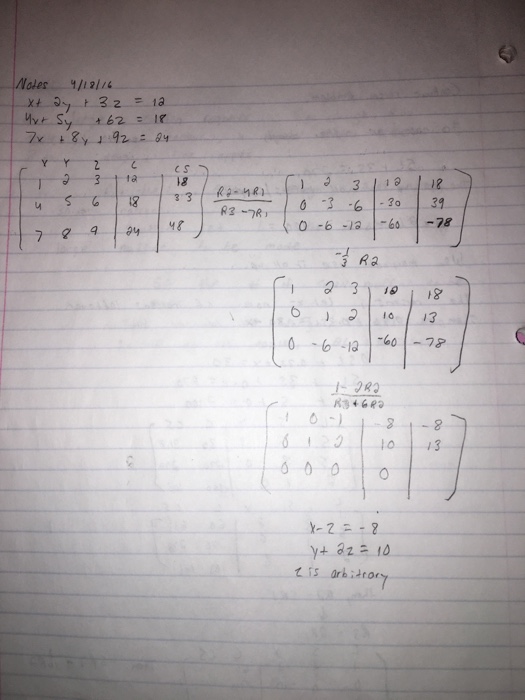 Notes 4/18/16
x + 2y + 3z = 12
4x + 5y + 6z = 18
7x + 8y + 9z = 24
x y z c cs
1 2 3 12 18
4 5 6 18 33
7 8 9 24 48
R2-4R1
R3-7R1
1 2 3 12 18
0 -3 -6 -30 39
0 -6 -12 -60 -78
-1/3 R2
1 2 3 12 18
0 1 2 10 13
0 -6 -12 -60 -78
1-2R2
R3+6R2
1 0 -1 -8 -8
0 1 2 10 13
0 0 0 0
x-z = -8
y+2z = 10
z is arbitrary